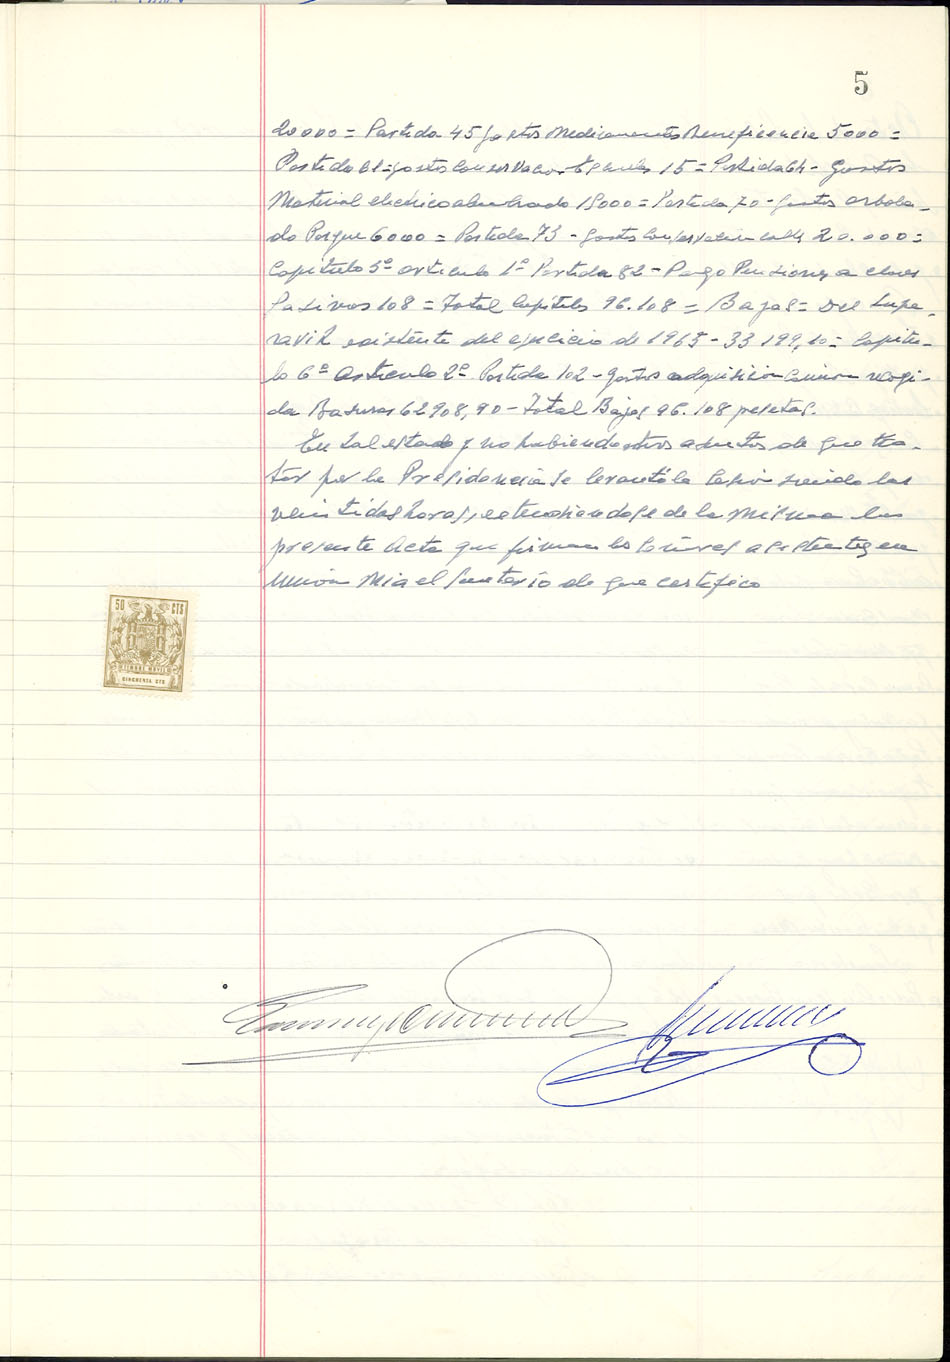 5
20000 = Partida 45 gastos Medicamentos Beneficencia 5000 =
Partida 61 = gastos Conservacion Escuelas 15 = Partida 64 - Gastos
Material electrico alumbrado 15000 = Partida 70 - Gastos arbola-
do Parque 6000 = Partida 73 - Gastos Conservacion calles 20.000 =
Capitulo 5º articulo 1º Partida 82 - Pago Pensiones a clases
Pasivas 108 = Total Capitulos 96.108 = Bajas = Del Supe-
ravit existente del ejercicio de 1965 - 33 199,10 = Capitu-
lo 6º articulo 2º Partida 102 - gastos adquisicion Camion recogi-
da Basuras 62908,90 - Total Bajas 96.108 pesetas.
En tal estado y no habiendo otros asuntos de que tra-
tar por la Presidencia se levantó la Sesion siendo las
veintidos horas, extendiendose de la misma la
presente Acta que firman los Señores asistentes en
Union Mia el Secretario de que certifico
50 CTS
TIMBRE MOVIL
CINCUENTA CTS